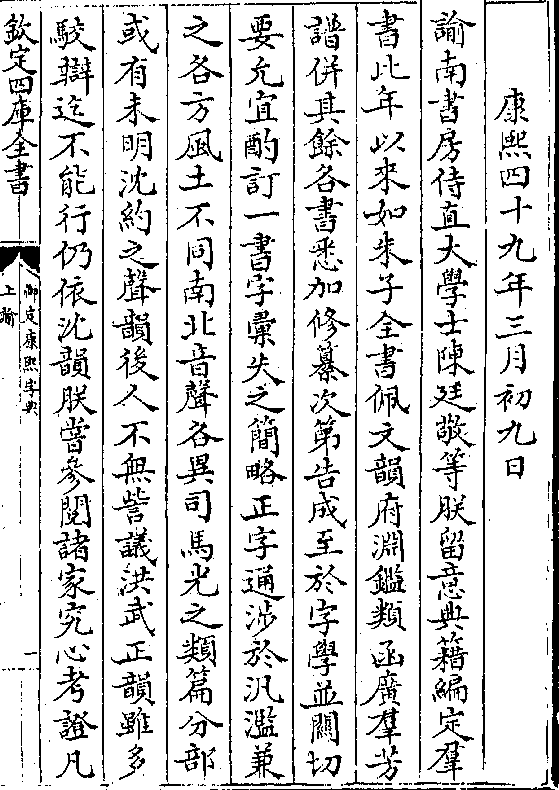 康熙四十九年三月初九日
諭南書房侍直大學士陳廷敬等朕留意典籍編定羣
書比年以來如朱子全書佩文韻府淵鑑類函廣羣芳
譜併其餘各書悉加修纂次第告成至於字學並關切
要允宜酌訂一書字彙失之簡略正字通涉於汎濫兼
之各方風土不同南北音聲各異司馬光之類篇分部
或有未明沈約之聲韻後人不無訾議洪武正韻雖多
駁辯迄不能行仍依沈韻朕嘗參閱諸家究心考證凡
欽定四庫全書
御定康熙字典
上諭
一